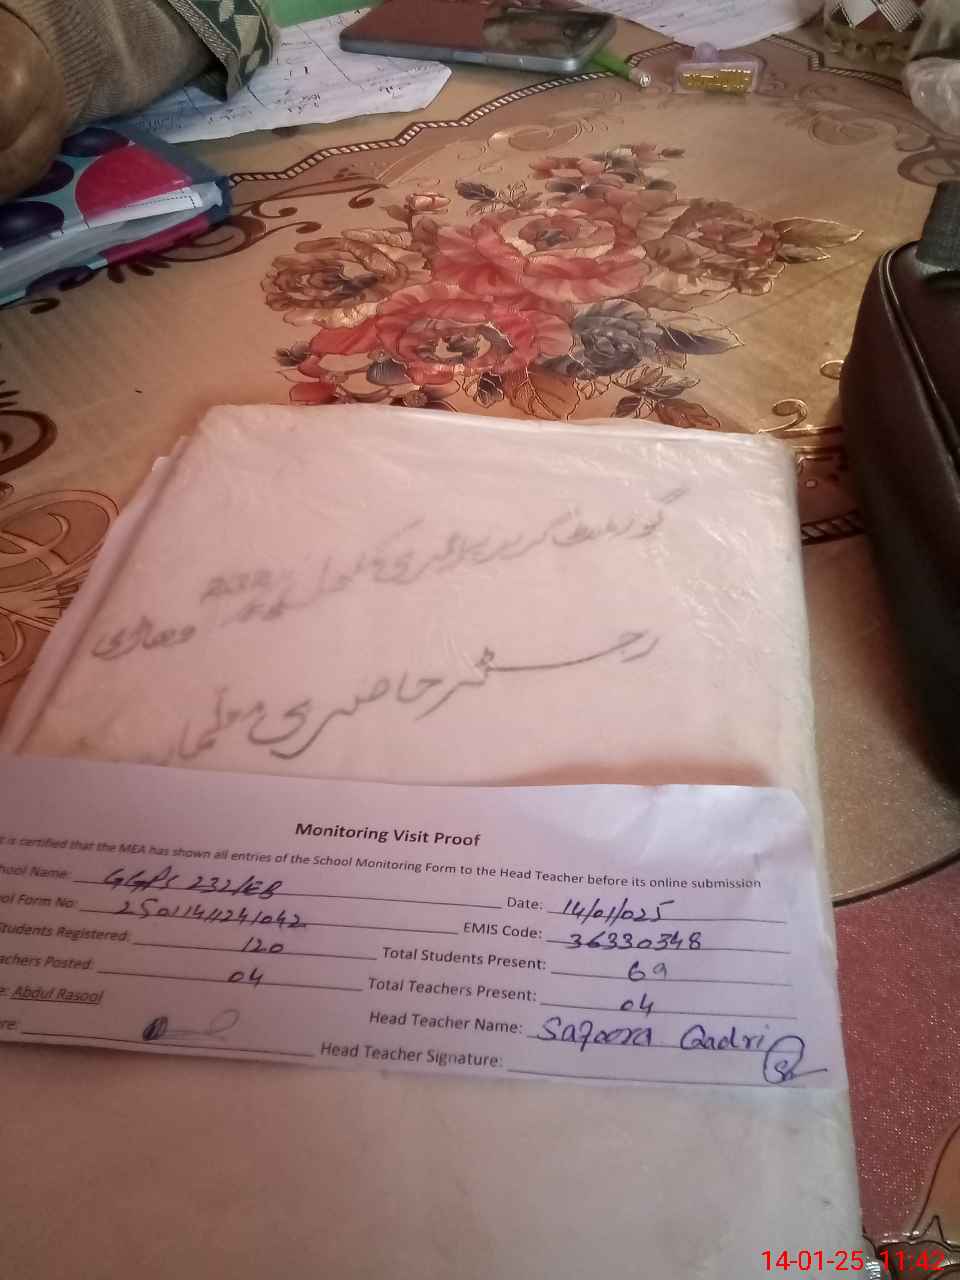 گورنمنٹ گرلز پرائمری سکول 232 وھاڑی
رجسٹر حاضری معلمات
Monitoring Visit Proof
t is certified that the MEA has shown all entries of the School Monitoring Form to the Head Teacher before its online submission
hool Name: GGPS 232/EB Date: 14/01/025
ol Form No: 25011411241042 EMIS Code: 36330348
Students Registered: 120 Total Students Present: 69
achers Posted: 04 Total Teachers Present: 04
e: Abdul Rasool Head Teacher Name: Safoora Qadri
re: Head Teacher Signature:
14-01-25 11:42